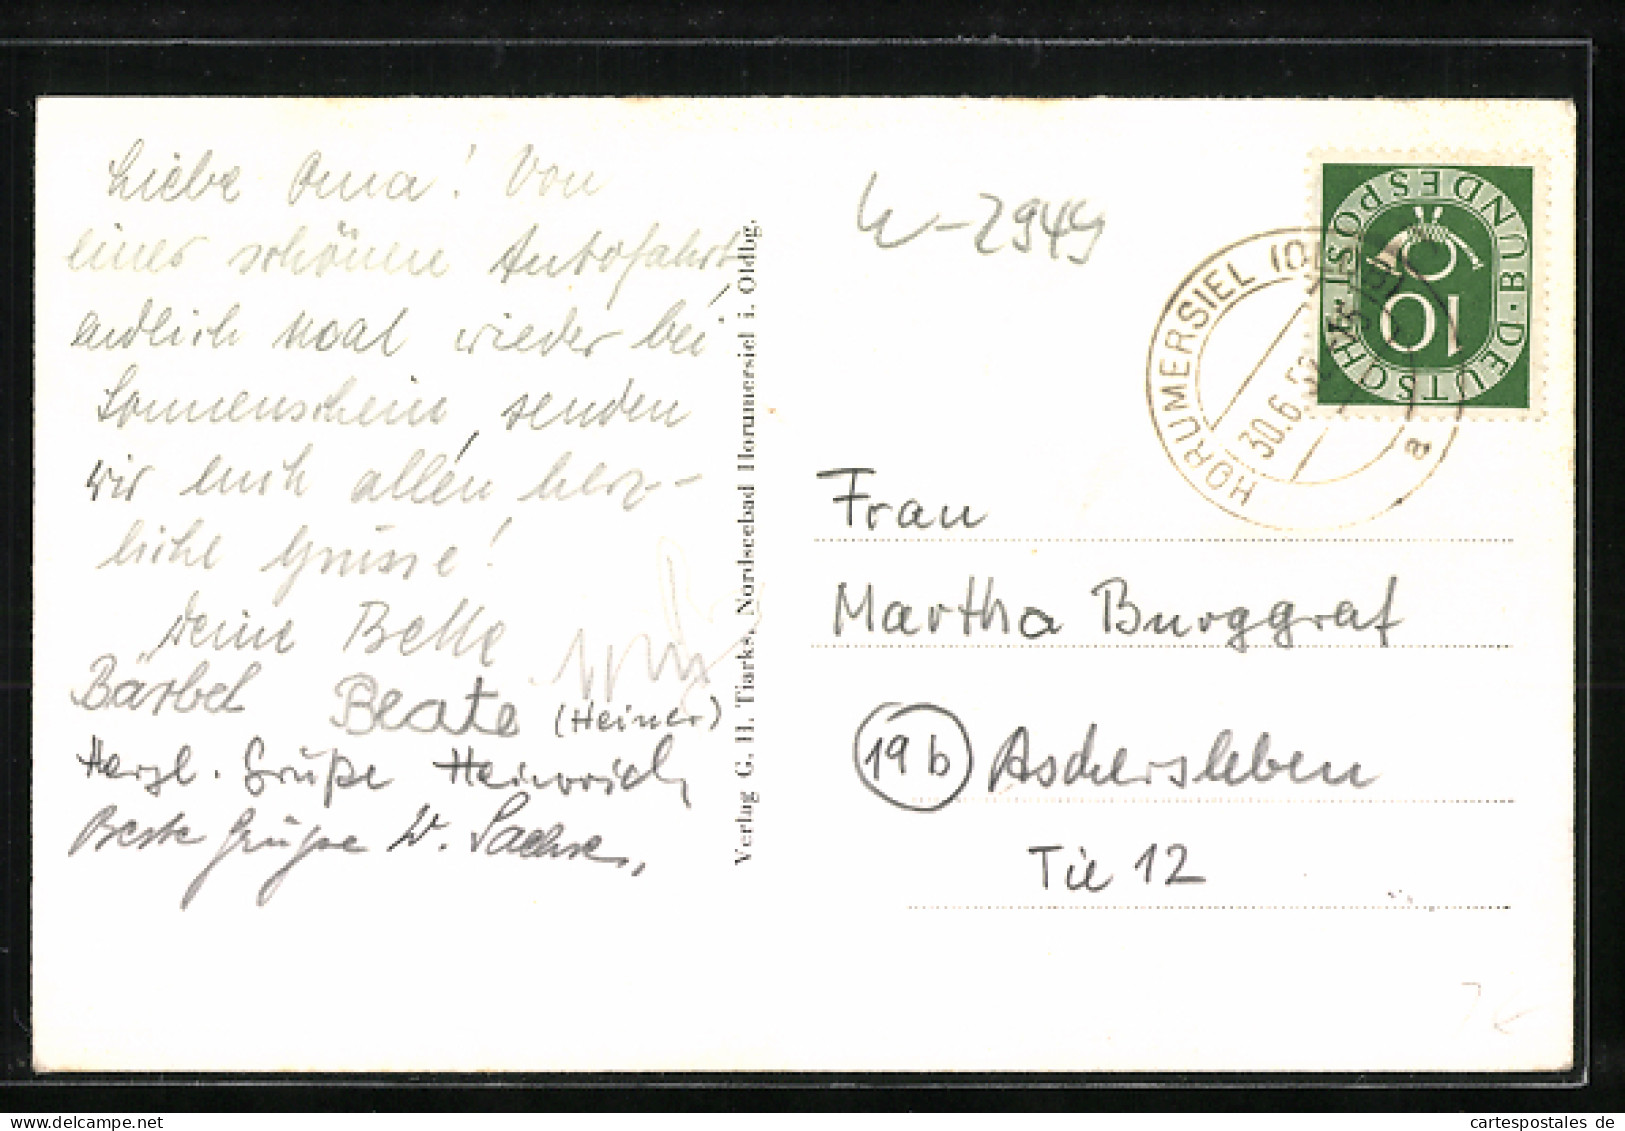 Liebe Oma! Von
einer schönen Autofahrt,
endlich mal wieder bei
Sonnenschein, senden
wir euch allen herz-
liche Grüsse!
Deine
Bärbel Beate (Heiner)
Herzl. Grüße Heinrich
Beste Grüße W. Sachse,
Verlag G. H. Tiarks, Nordseebad Horumersiel i. Oldbg.
2949
DEUTSCHE BUNDESPOST
10
HORUMERSIEL
30.6.5
a
Frau
Martha Burggraf
19b Aschersleben
Tie 12
cartespostales de